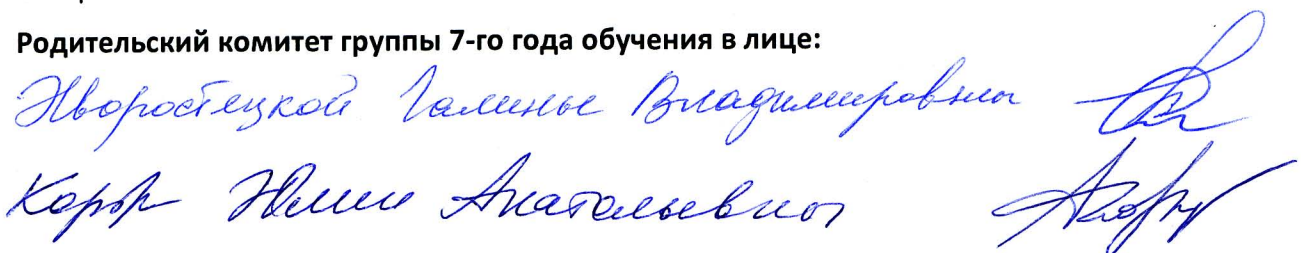 Родительский комитет группы 7-го года обучения в лице:
Хворостецкой Галины Владимировны
Юлии Анатольевны